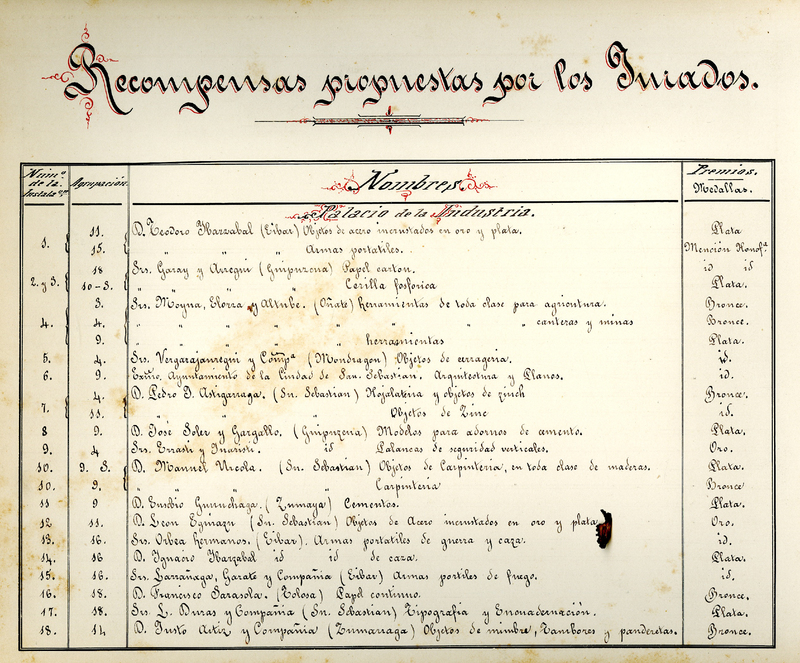 Recompensas propuestas por los Jurados.
Núm.º de la Instalc.ón Agrupación. Nombres Premios. Medallas.
Palacio de la Industria.
1. 11. D. Teodoro Ibarzabal (Eibar) Objetos de acero incrustados en oro y plata. Plata
15. " " Armas portatiles. Mención Honof.ª
2. y 3. 18 Srs. Garay y Arregui (Guipuzcoa) Papel carton. id id
10-3. " " " " Cerilla fosforica Plata.
4. 3. Srs. Moyna, Elorza y Altube. (Oñate) herramientas de toda clase para agricutura. Bronce.
4. " " " " " " " canteras y minas Bronce.
9. " " " " herramientas Plata.
5. 4. Srs. Vergarajauregui y Comp.ª (Mondragon) Objetos de cerrageria. id.
6. 9. Excmo. Ayuntamiento de la Ciudad de San Sebastian. Arquitectura y Planos. id.
7. 4. D. Pedro D. Astigarraga. (Sn. Sebastian) Hojalateria y objetos de zinch Bronce.
11. " " " Objetos de Zinc id.
8 9. D. José Soler y Gargallo. (Guipuzcoa) Modelos para adornos de cemento. Plata.
9. 4 Srs. Errasti y Iraristi. id Palancas de seguridad verticales. Oro.
10. 9. 3. D. Manuel Urcola. (Sn. Sebastian) Objetos de Carpinteria, en toda clase de maderas. Plata.
10. 9. " " " Carpinteria Bronce
11 9 D. Eusebio Gurruchaga. (Zumaya) Cementos. Plata.
12 11. D. Leon Eguiazu (Sn. Sebastian) Objetos de Acero incrustados en oro y plata Oro.
13. 16. Srs. Orbea hermanos. (Eibar). Armas portatiles de guerra y caza. id.
14. 16 D. Ignacio Ibarzabal id id de caza. Plata.
15. 16. Srs. Larrañaga, Garate y Compañia (Eibar) Armas portiles de fuego. id.
16. 18. D. Francisco Sarasola. (Tolosa) Papel continuo. Bronce.
17. 18. Srs. L. Duras y Compañia (Sn. Sebastian) Tipografia y Encuadernación. Plata.
18. 14 D. Justo Artiz y Compañia (Zumarraga) Objetos de mimbre, Tambores y panderetas. Bronce.